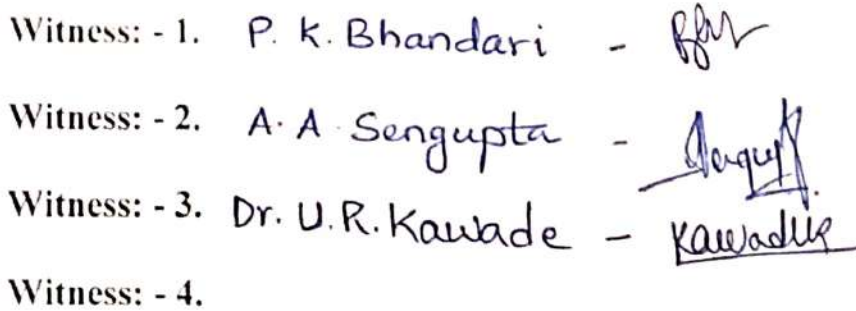 Witness: - 1. P. K. Bhandari -
Witness: - 2. A. A Sengupta -
Witness: - 3. Dr. U.R. Kawade - Kawade
Witness: - 4.